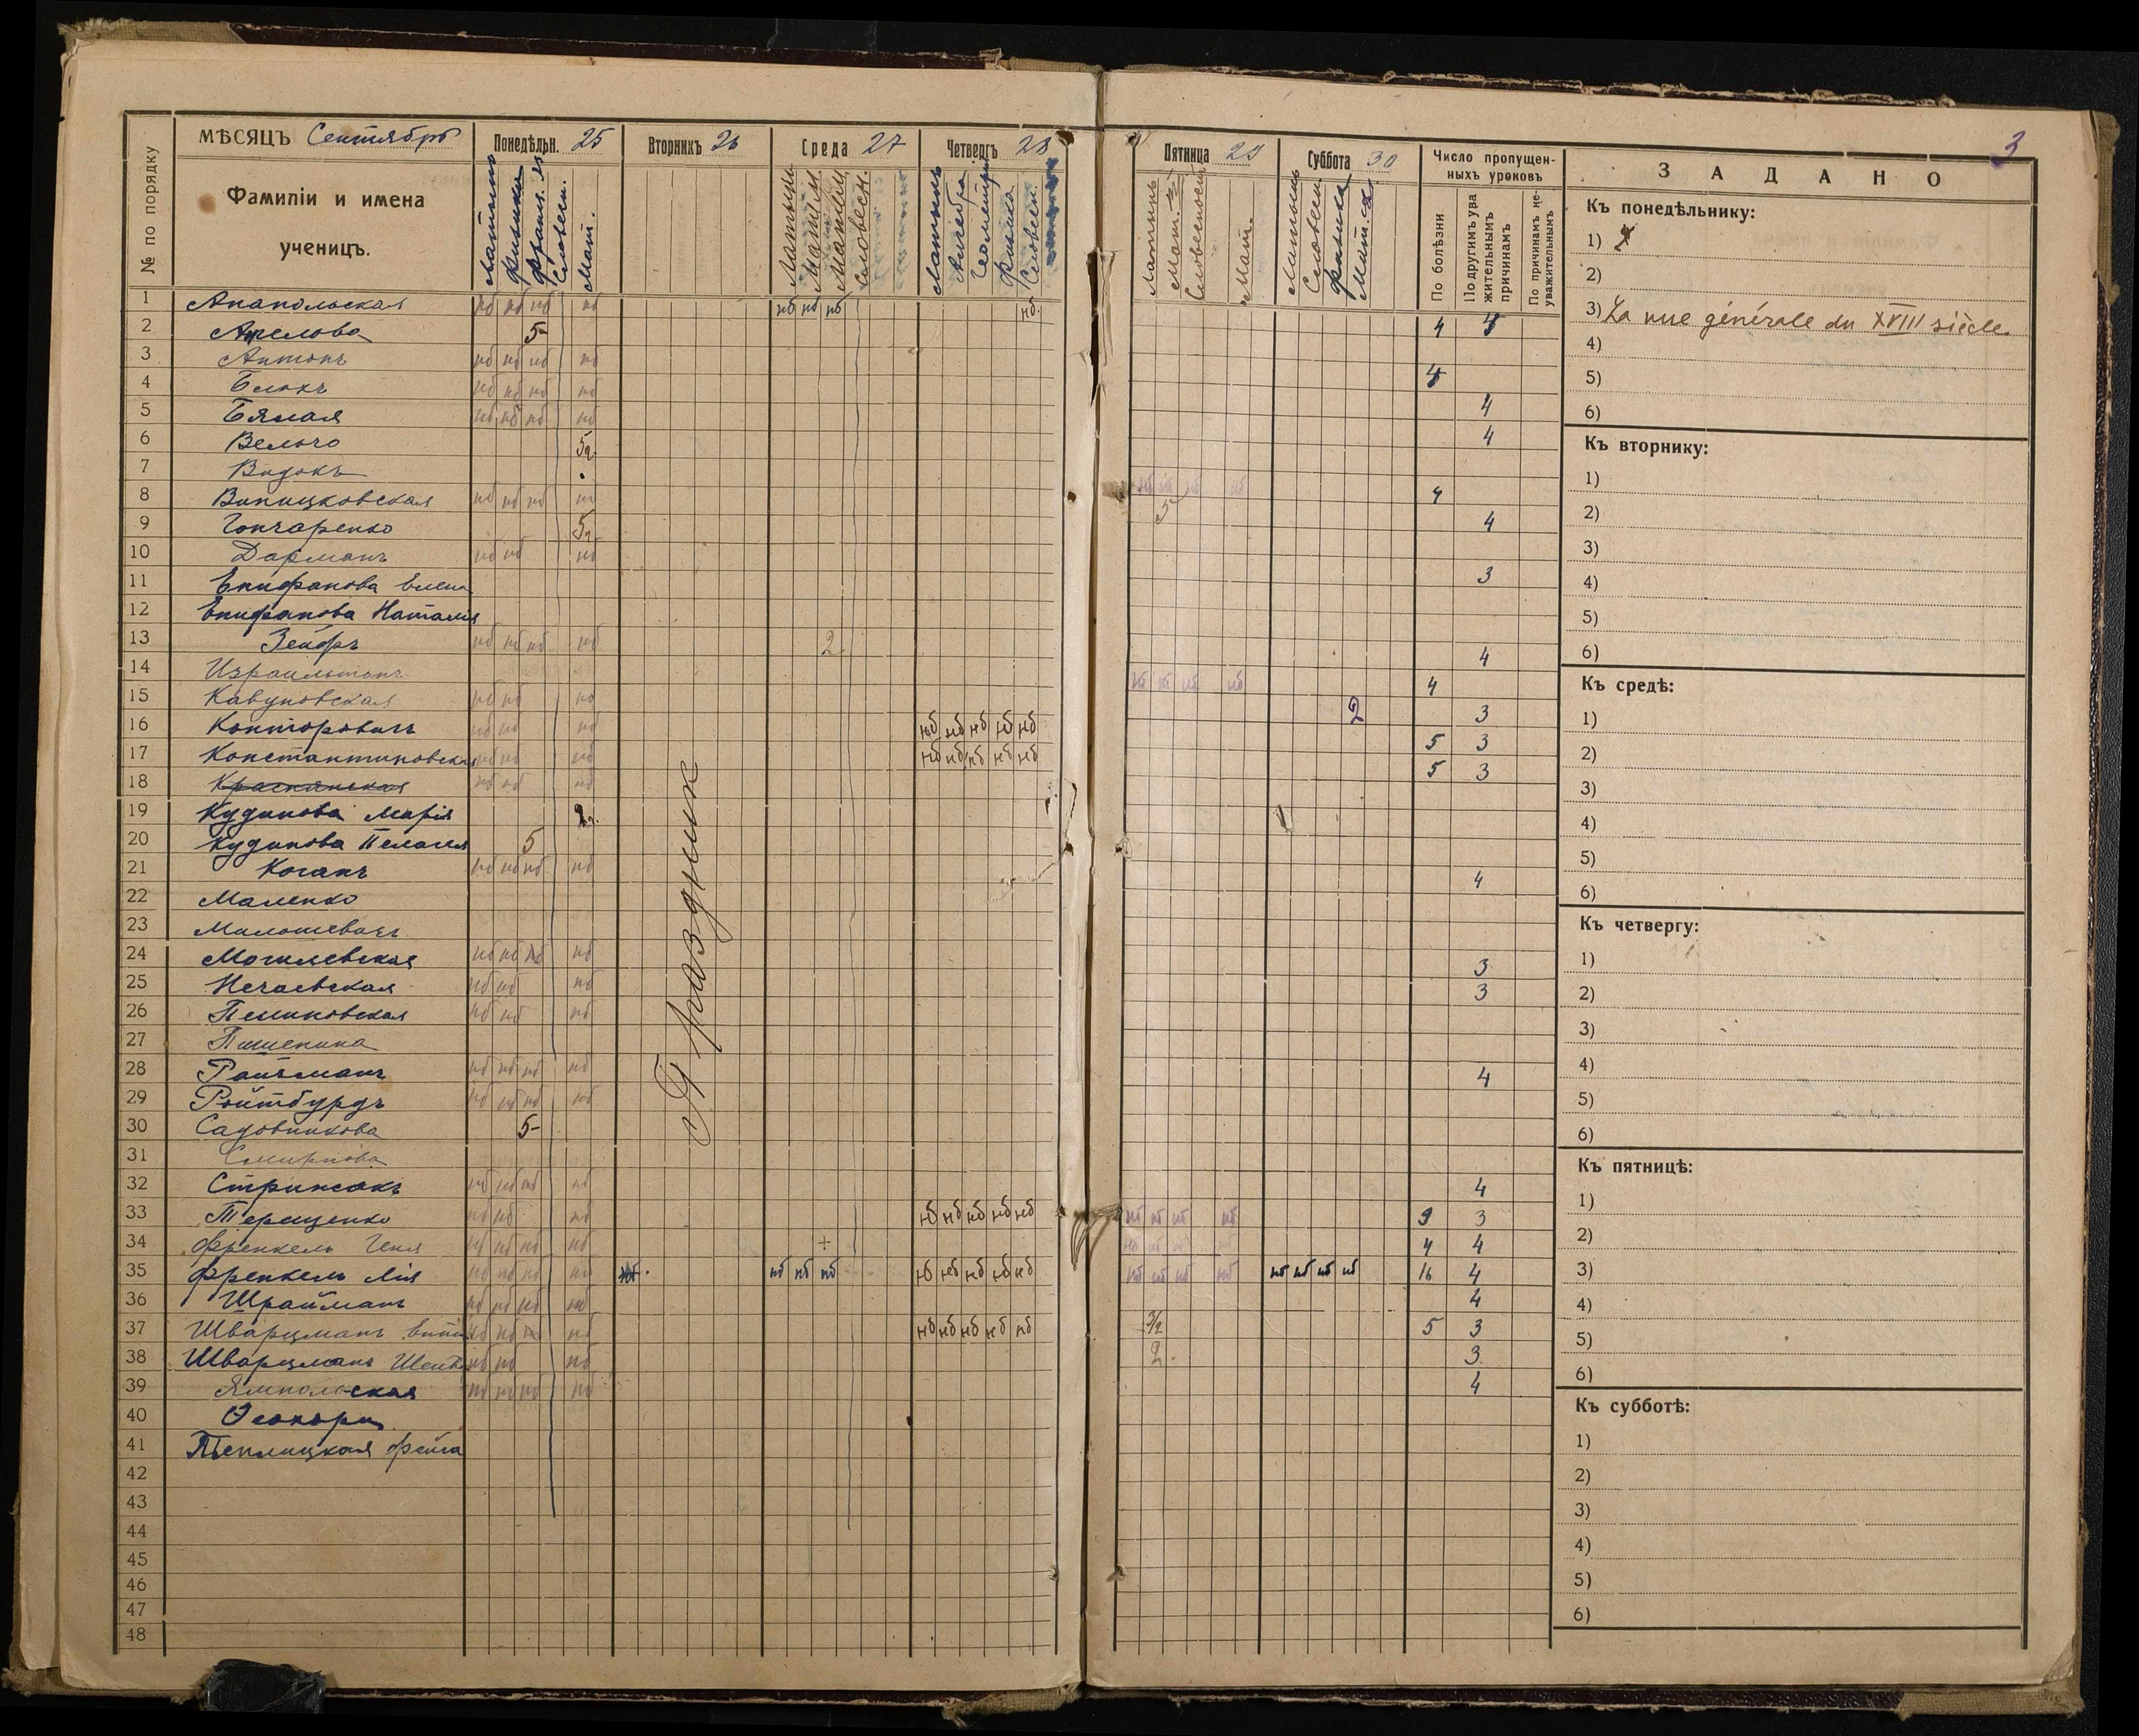 3
МѢСЯЦЪ Сентябрь
Понедѣльн. 25
Вторникъ 26
Среда 27
Четвергъ 28
Пятница 29
Суббота 30
Число пропущенныхъ уроковъ
ЗАДАНО
№ по порядку
Фамиліи и имена
ученицъ.
Латынь Физика Франц. Словесн. Мат.
Латынь Словесн.
Латинь Алгебра Геометрія Физика Словесн.
Латинь Мат. Словесность Мат.
Латынь Словесн Физика Мат.
По болѣзни
По другимъ уважительнымъ причинамъ
По причинамъ неуважительнымъ
Праздник
1 Анапольская нб нб нб нб нб нб нб нб 4 4
2 5-
3 Антонъ нб нб нб нб 4
4 Блохъ нб нб нб нб 4
5 Бялая нб нб нб нб 4
6 Вельчо 5
7 Видокъ нб нб нб нб 4
8 Виницковская нб нб нб нб 5 4
9 Гончаренко 5
10 Дарманъ нб нб нб 3
11 Епифанова Елена
12 Епифанова Наталія
13 Зейфъ нб нб нб нб 2 4
14 нб нб нб нб 4
15 Кавуновская нб нб нб 2 3
16 Конторовичъ нб нб нб нб нб нб нб нб 5 3
17 Константиновская нб нб нб нб нб нб нб нб 5 3
18 Краснянская нб нб нб
19 Кудинова Марія 2
20 Кудинова Пелагея 5
21 Коганъ нб нб нб нб 4
22 Маленко
23 Милошевичъ
24 Могилевская нб нб нб нб 3
25 Нечаевская нб нб нб 3
26 нб нб нб
27 Пшенина
28 Райзманъ нб нб нб нб 4
29 Ройтбурдъ нб нб нб нб
30 Садовникова 5-
31 Смирнова
32 Стрижакъ нб нб нб нб 4
33 Терещенко нб нб нб нб нб нб нб нб нб нб нб нб 9 3
34 Френкель Геня нб нб нб нб + нб нб нб нб 4 4
35 Френкель Лія нб нб нб нб нб нб нб нб нб нб нб нб нб нб нб нб нб нб нб нб 16 4
36 Шрайманъ нб нб нб нб 4
37 Шварцманъ нб нб нб нб нб нб нб нб нб 3/2 5 3
38 Шварцманъ нб нб нб 2. 3
39 Ямпольская нб нб нб нб 4
40
41 Теплицкая Фейга
42
43
44
45
46
47
48
Къ понедѣльнику:
1)
2)
3) La vue générale du XVIII siècle
4)
5)
6)
Къ вторнику:
1)
2)
3)
4)
5)
6)
Къ средѣ:
1)
2)
3)
4)
5)
6)
Къ четвергу:
1)
2)
3)
4)
5)
6)
Къ пятницѣ:
1)
2)
3)
4)
5)
6)
Къ субботѣ:
1)
2)
3)
4)
5)
6)